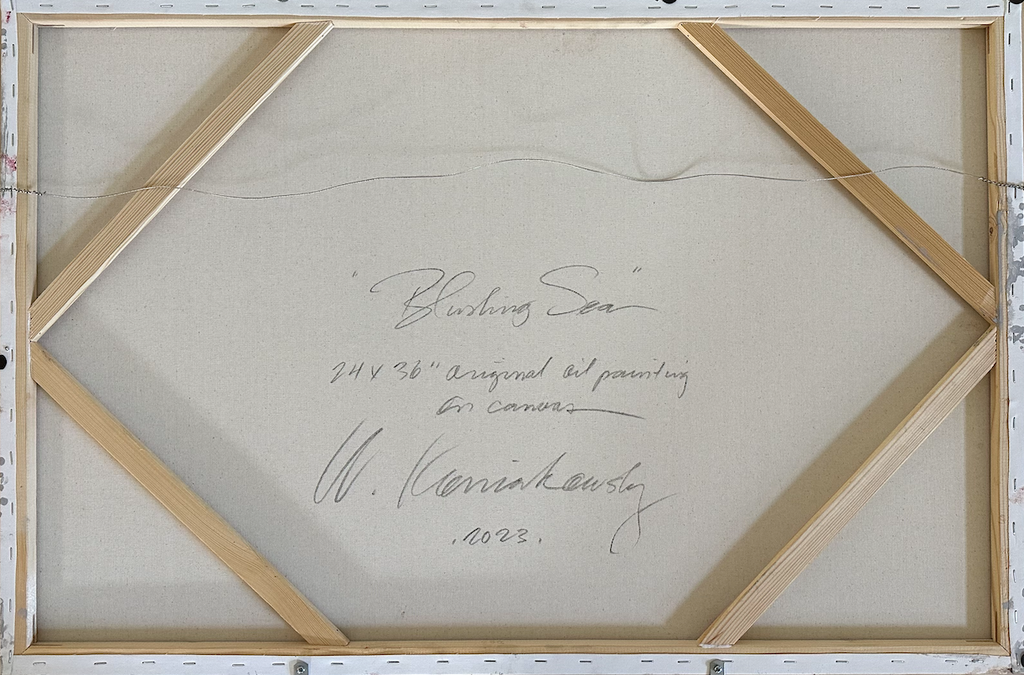 "Blushing Sea"
24 x 36" original oil painting
on canvas
W. Koniakowsky
.2023.